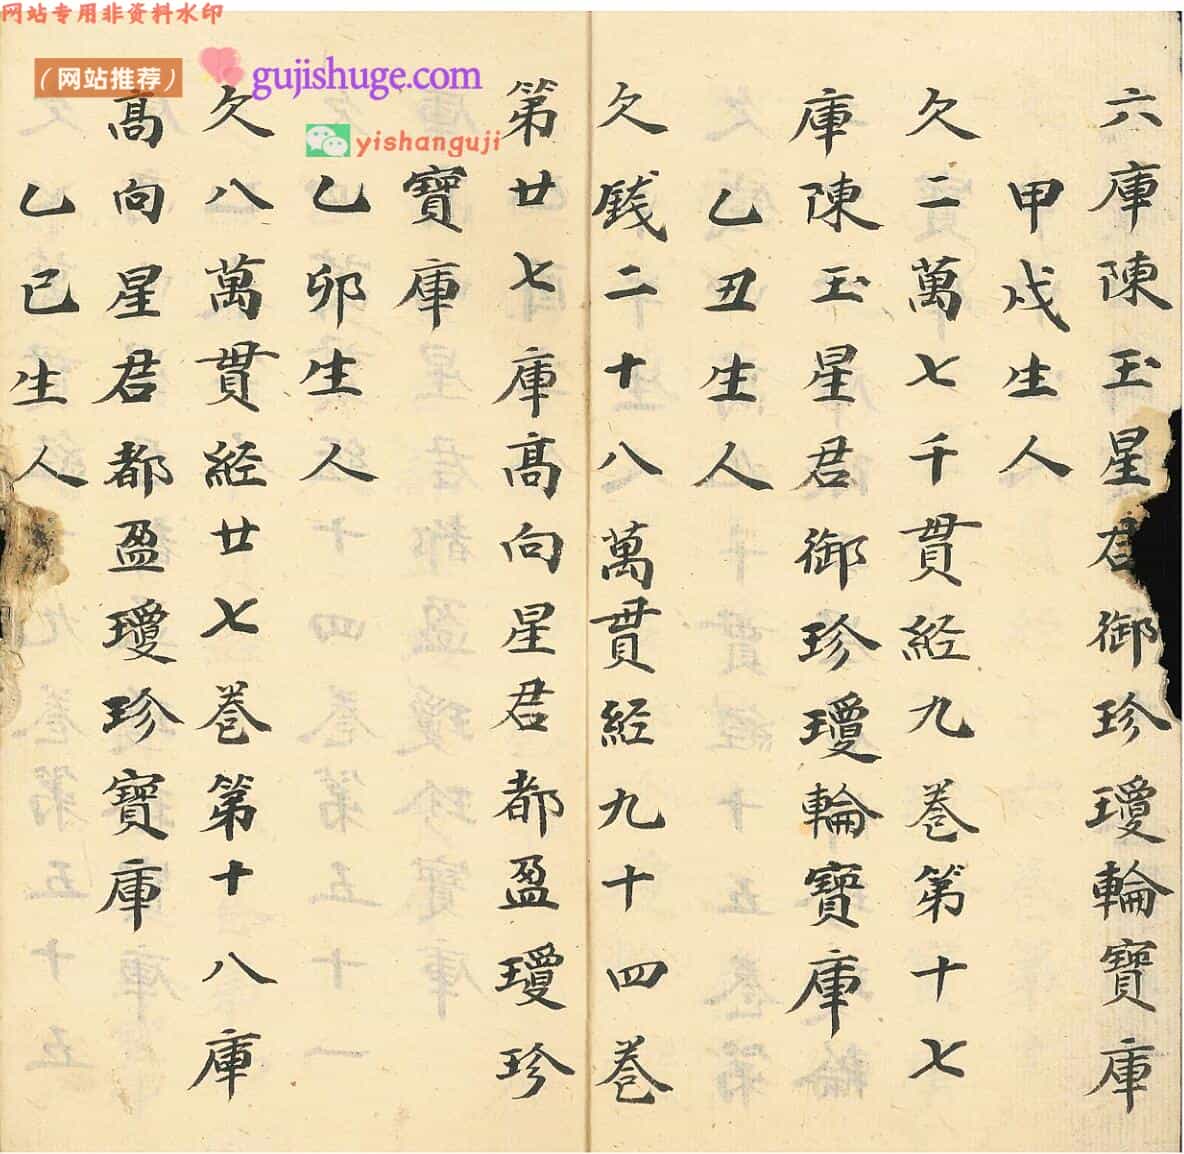 网站专用非资料水印
（网站推荐）
gujishuge.com
yishanguji
六庫陳玉星君御珍瓊輪寶庫
甲戌生人
欠二萬七千貫経九卷第十七
庫陳玉星君御珍瓊輪寶庫
乙丑生人
欠銭二十八萬貫経九十四卷
第廿七庫高向星君都盈瓊珍
寶庫
乙卯生人
欠八萬貫経廿七卷第十八庫
高向星君都盈瓊珍寶庫
乙巳生人